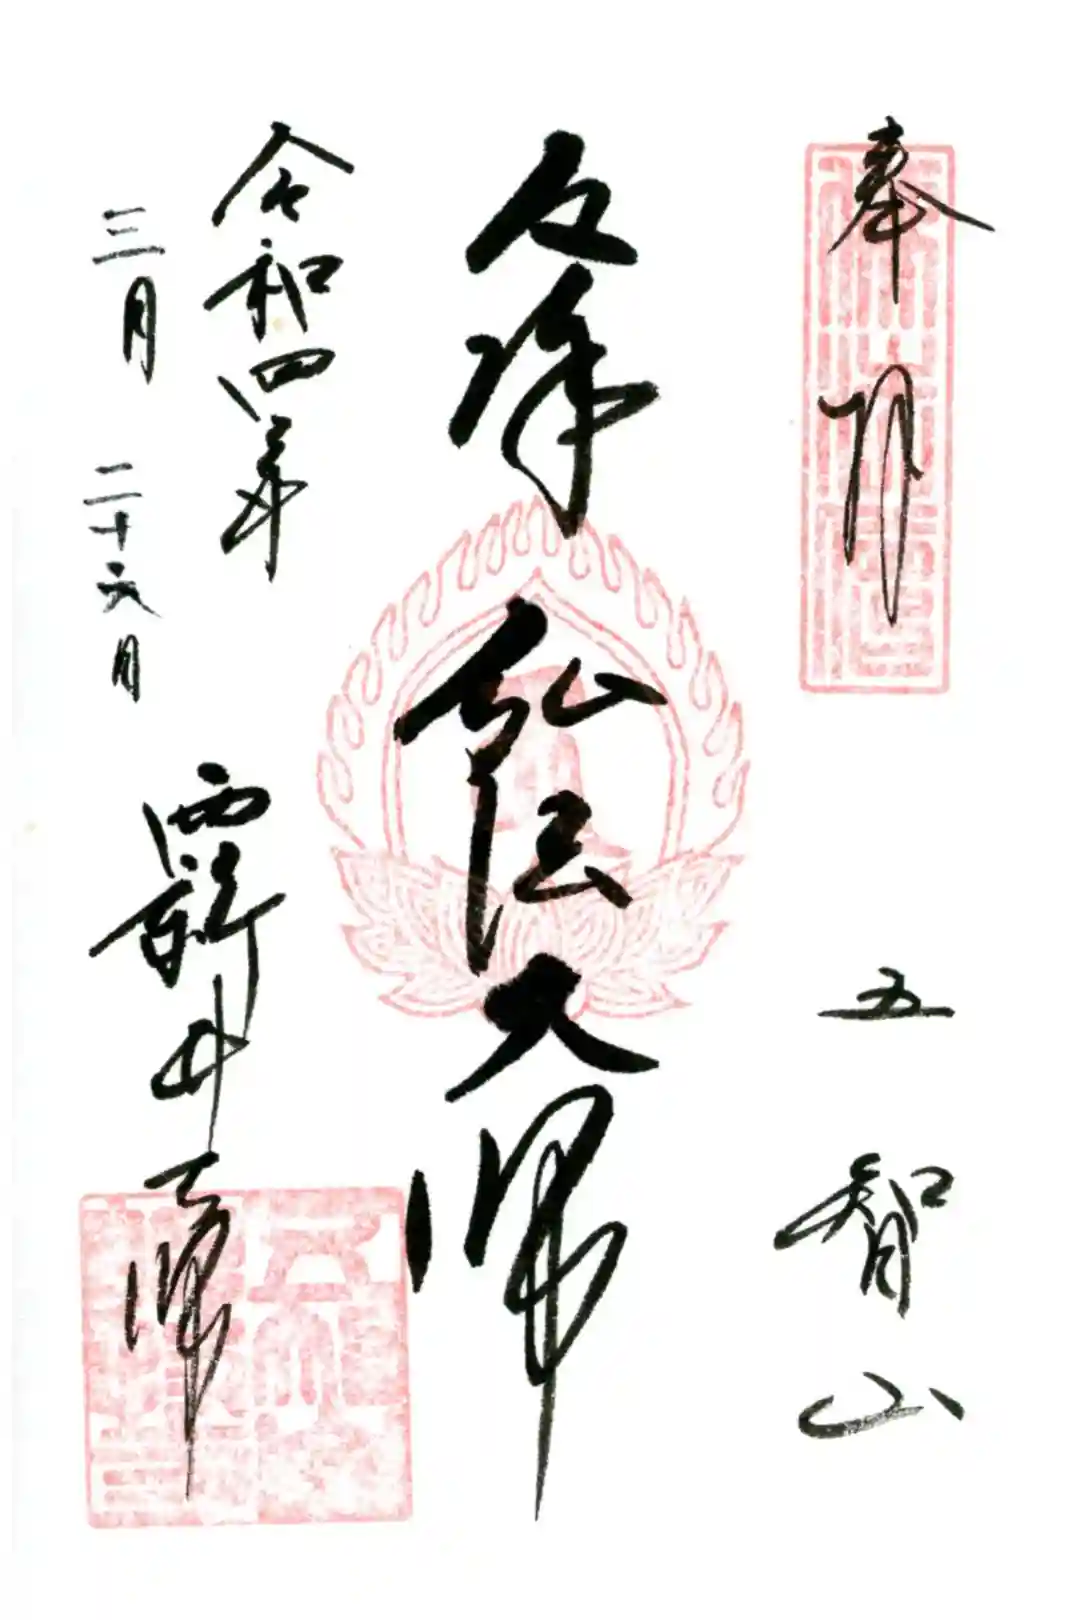 奉拝 五智山
厄除 弘法大師
令和四年
三月二十六日
西新井大師